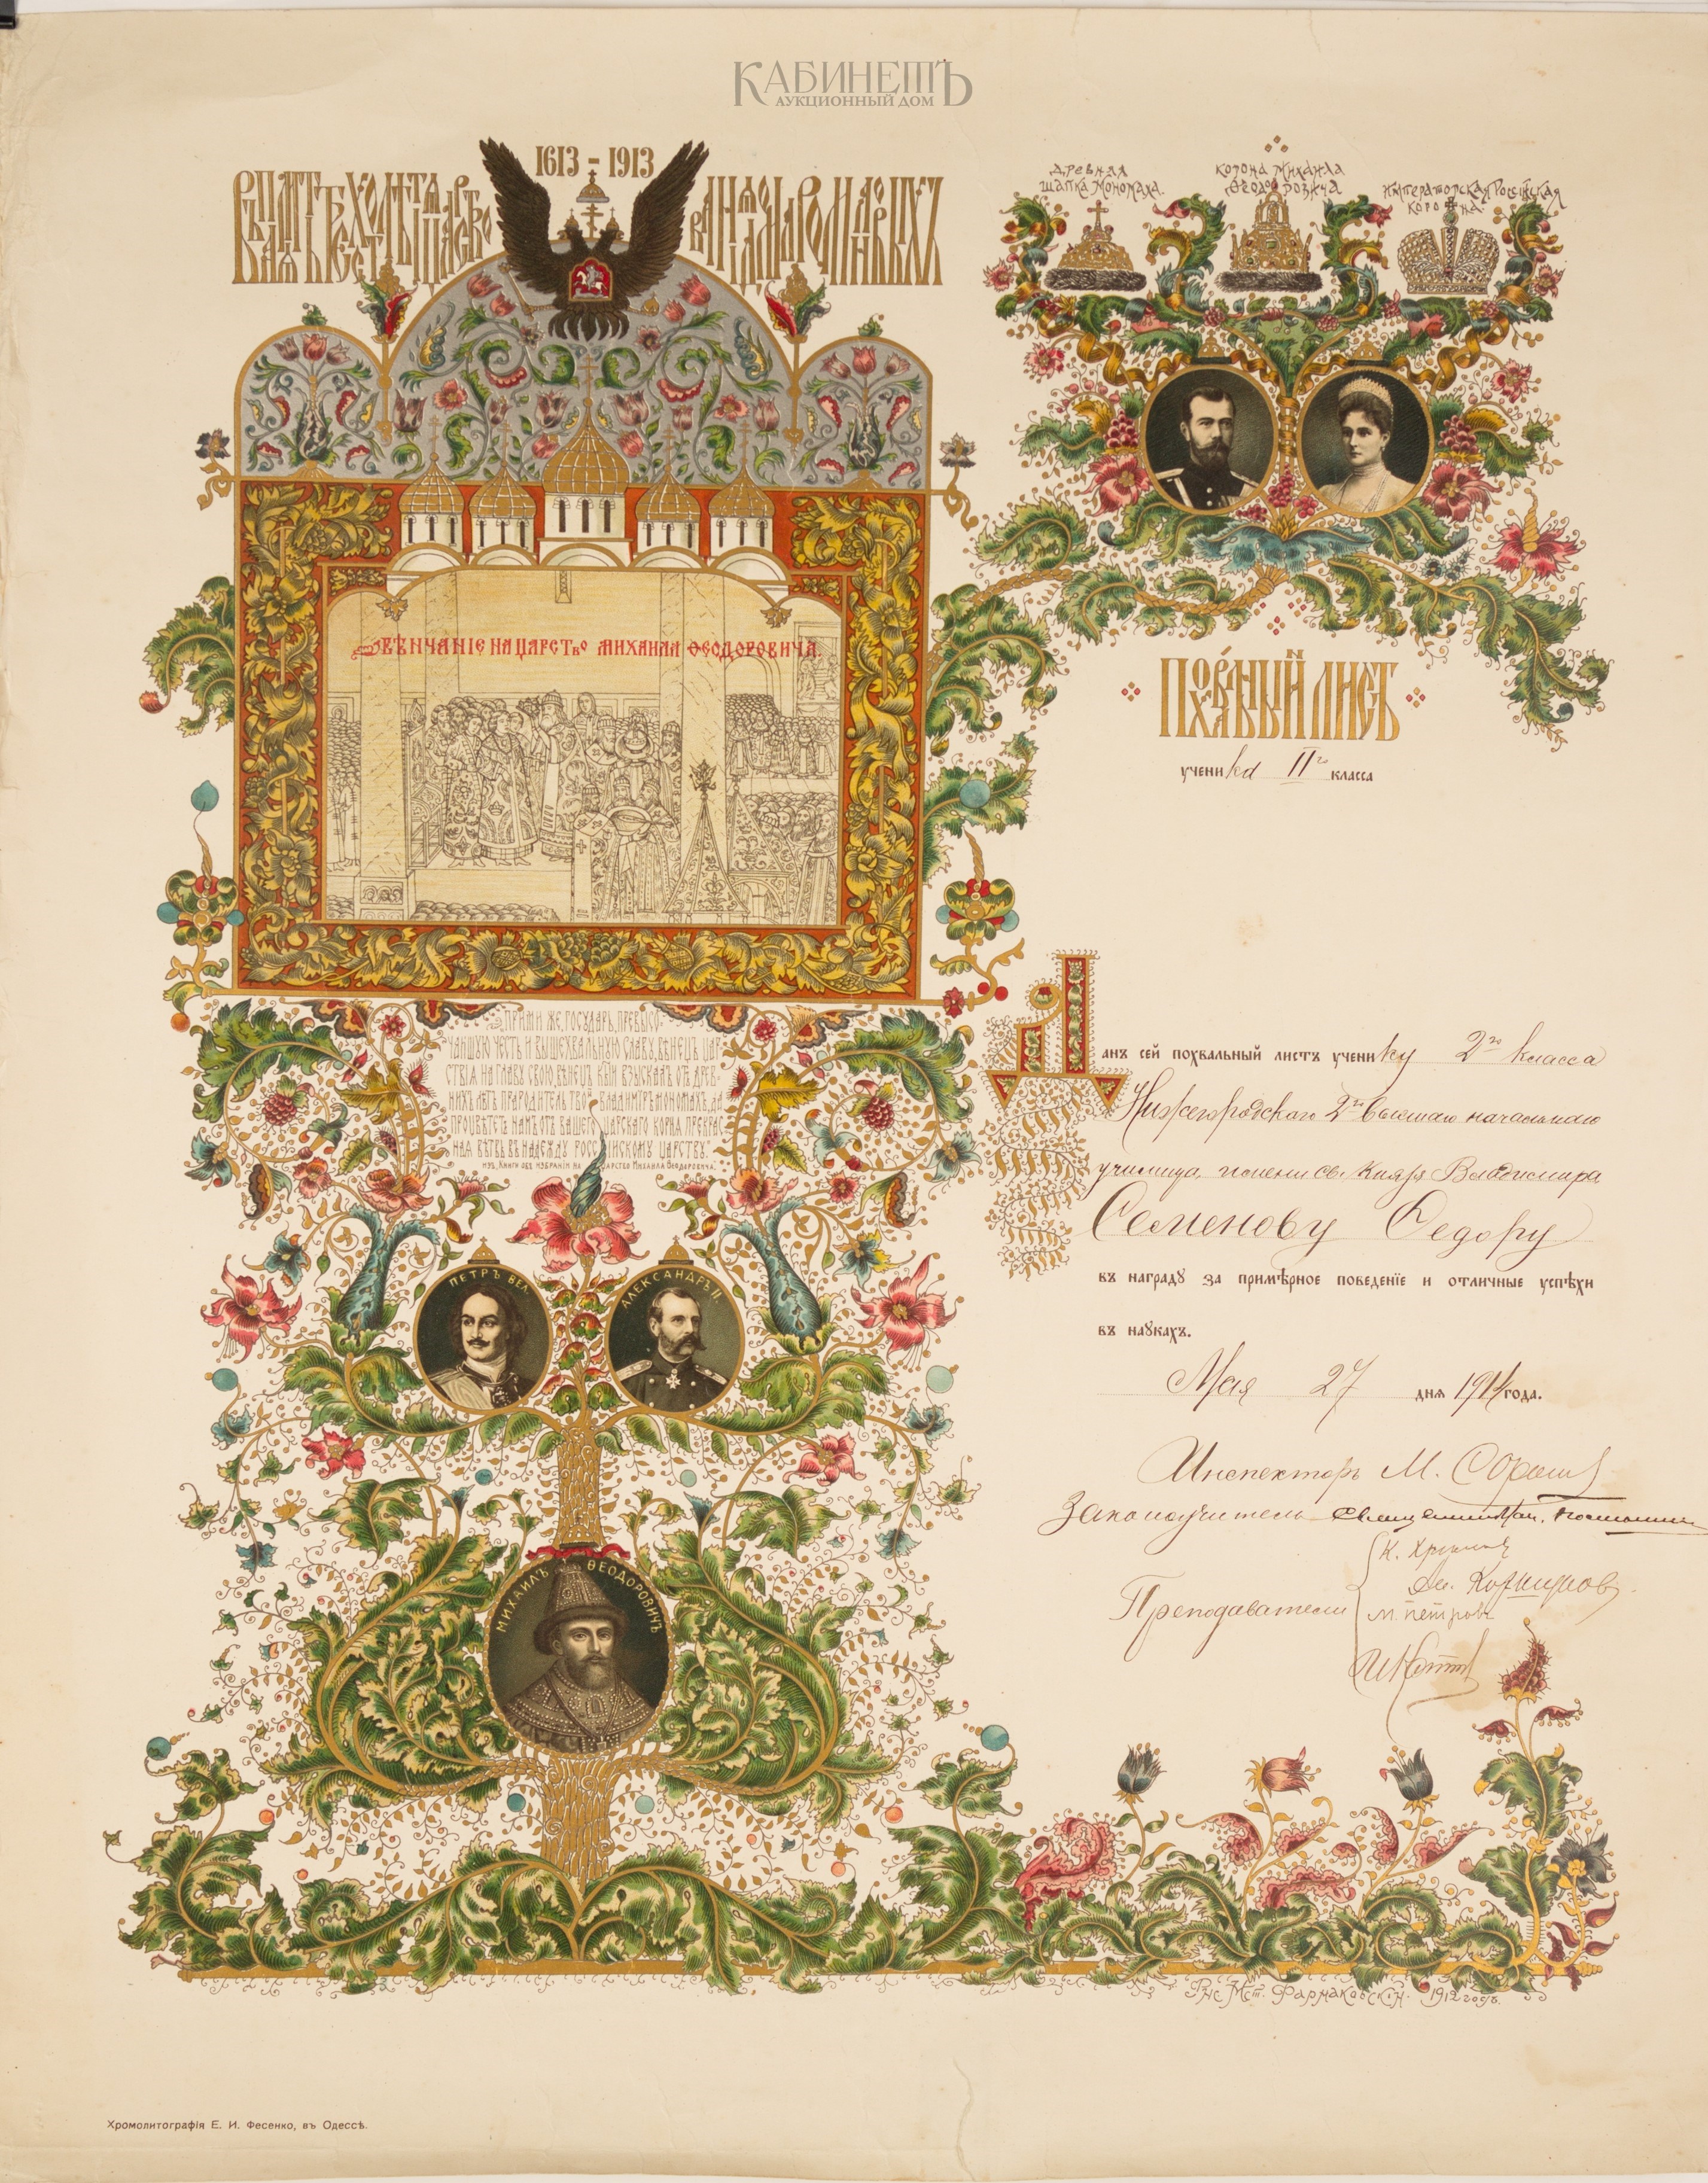 КАБИНЕТЪ
АУКЦИОННЫЙ ДОМ
1613 - 1913
ВЪ ПАМЯТЬ ТРЕХСОТЛѢТІЯ ЦАРСТВОВАНІЯ ДОМА РОМАНОВЫХЪ
ДРЕВНЯЯ
ШАПКА МОНОМАХА.
КОРОНА МИХАИЛА
ѲЕОДОРОВИЧА
ИМПЕРАТОРСКАЯ РОССІЙСКАЯ
КОРОНА.
ВѢНЧАНІЕ НА ЦАРСТВО МИХАИЛА ѲЕОДОРОВИЧА.
ПОХВАЛЬНЫЙ ЛИСТЪ
ученика II го класса
„ПРИМИ ЖЕ, ГОСУДАРЬ, ПРЕВЫСО-
ЧАЙШУЮ ЧЕСТЬ И ВЫШЕХВАЛЬНУЮ СЛАВУ, ВѢНЕЦЪ ЦАР-
СТВІЯ НА ГЛАВУ СВОЮ, ВѢНЕЦЪ КЫЙ ВЗЫСКАЛЪ ОТЪ ДРЕВ-
НИХЪ ЛѢТЪ ПРАРОДИТЕЛЬ ТВОЙ ВЛАДИМІРЪ МОНОМАХЪ, ДА
ПРОЦВѢТЕТЪ НАМЪ ОТЪ ВАШЕГО ЦАРСКАГО КОРНЯ ПРЕКРАС-
НАЯ ВѢТВЬ ВЪ НАДЕЖДУ РОССІЙСКОМУ ЦАРСТВУ."
ИЗЪ „КНИГИ ОБЪ ИЗБРАНІИ НА ЦАРСТВО МИХАИЛА ѲЕОДОРОВИЧА."
ПЕТРЪ ВЕЛ.
АЛЕКСАНДРЪ II.
МИХАИЛЪ ѲЕОДОРОВИЧЪ
Данъ сей похвальный листъ ученику 2го класса
Нижегородскаго 2го высшаго начальнаго
училища, имени св. Князя Владимира
Семенову Федору
въ награду за примѣрное поведеніе и отличные успѣхи
въ наукахъ.
Мая 27 дня 1914 года.
Инспекторъ М.
Законоучитель священникъ
Преподаватели
К.
М. Петровъ
Рис. Мст. Фармаковскій. 1912 годъ.
Хромолитографія Е. И. Фесенко, въ Одессѣ.